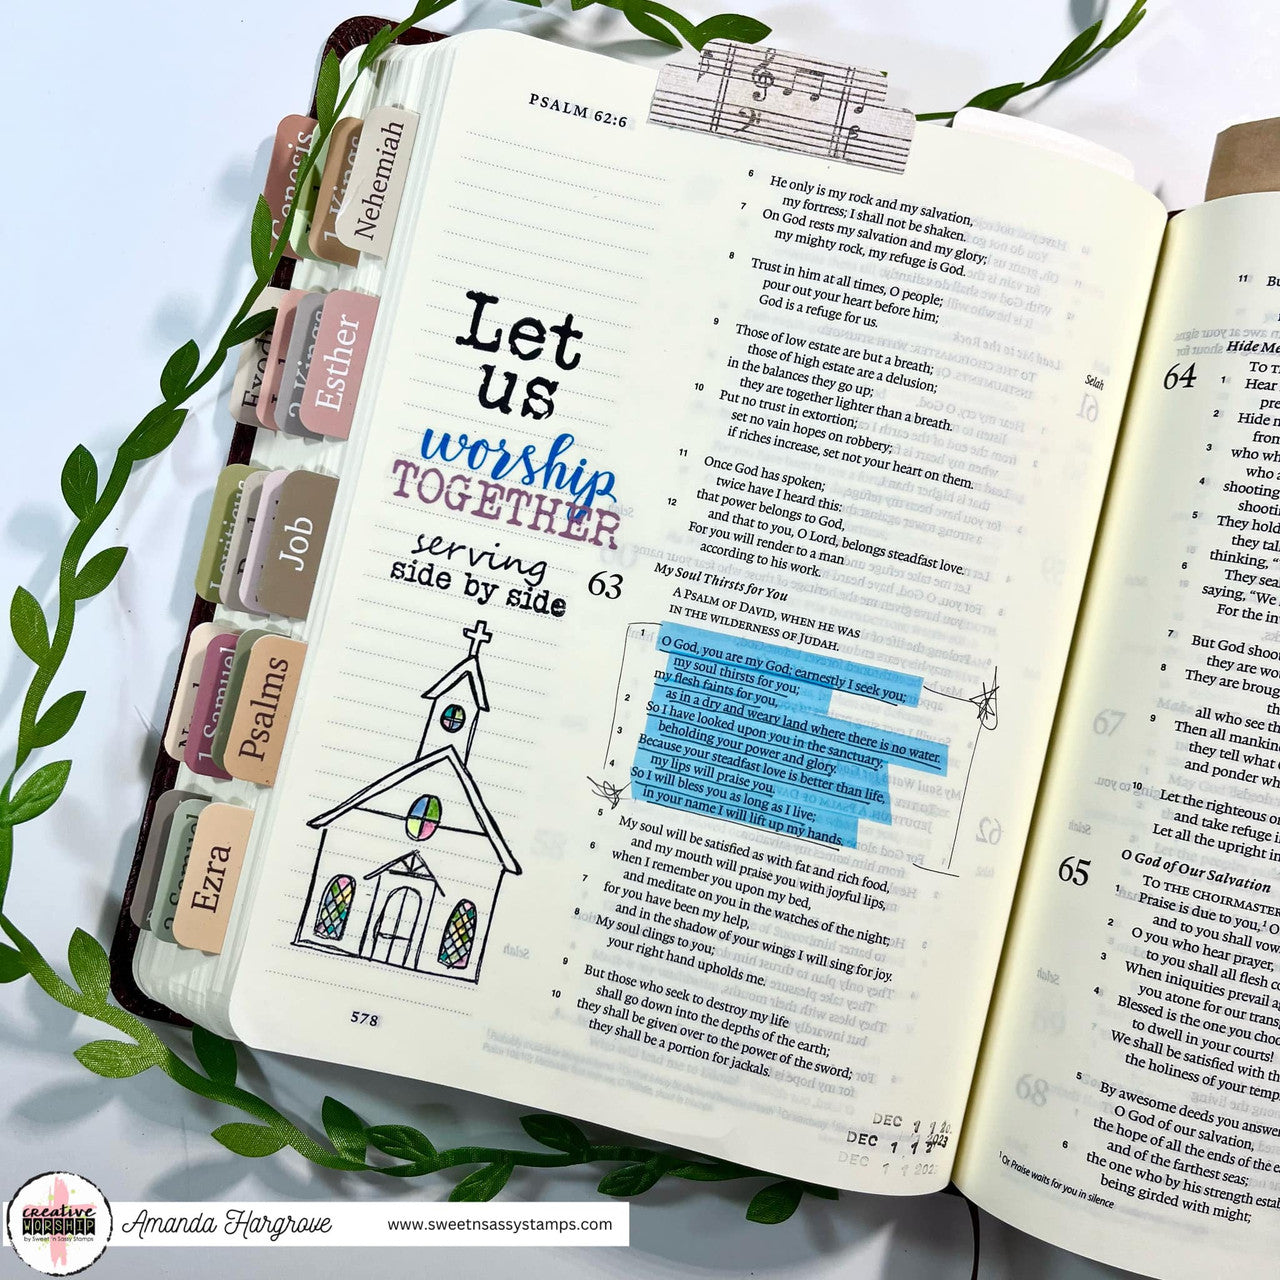 PSALM 62:6
Genesis
1 Kings
Nehemiah
2 Kings
Esther
Leviticus
Job
1 Samuel
Psalms
2 Samuel
Ezra
Let
us
worship
TOGETHER
serving
side by side
578
6 He only is my rock and my salvation,
my fortress; I shall not be shaken.
7 On God rests my salvation and my glory;
my mighty rock, my refuge is God.
8 Trust in him at all times, O people;
pour out your heart before him;
God is a refuge for us. Selah
9 Those of low estate are but a breath;
those of high estate are a delusion;
in the balances they go up;
they are together lighter than a breath.
10 Put no trust in extortion;
set no vain hopes on robbery;
if riches increase, set not your heart on them.
11 Once God has spoken;
twice have I heard this:
that power belongs to God,
12 and that to you, O Lord, belongs steadfast love.
For you will render to a man
according to his work.
My Soul Thirsts for You
63 A PSALM OF DAVID, WHEN HE WAS
IN THE WILDERNESS OF JUDAH.
1 O God, you are my God; earnestly I seek you;
my soul thirsts for you;
my flesh faints for you,
as in a dry and weary land where there is no water.
2 So I have looked upon you in the sanctuary,
beholding your power and glory.
3 Because your steadfast love is better than life,
my lips will praise you.
4 So I will bless you as long as I live;
in your name I will lift up my hands.
5 My soul will be satisfied as with fat and rich food,
and my mouth will praise you with joyful lips,
6 when I remember you upon my bed,
and meditate on you in the watches of the night;
7 for you have been my help,
and in the shadow of your wings I will sing for joy.
8 My soul clings to you;
your right hand upholds me.
9 But those who seek to destroy my life
shall go down into the depths of the earth;
10 they shall be given over to the power of the sword;
they shall be a portion for jackals.
DEC 1 1 20
DEC 1 1 2023
DEC 1 1 202
11 Bu
Hide Me
64 TO T
1 Hear
pre
2 Hide m
from
3 who wh
who a
4 shooting
shootin
5 They hold
they tal
thinking, "
6 They sea
saying, "We
For the inw
7 But God shoo
they are wo
8 They are broug
all who see th
9 Then all mankin
they tell what
and ponder wh
10 Let the righteous o
and take refuge i
Let all the upright in
O God of Our Salvation
65 TO THE CHOIRMASTE
1 Praise is due to you,¹ O
and to you shall vow
2 O you who hear prayer,
to you shall all flesh c
3 When iniquities prevail a
you atone for our trans
4 Blessed is the one you choo
to dwell in your courts!
We shall be satisfied with the
the holiness of your temp
5 By awesome deeds you answer
O God of our salvation,
the hope of all the ends of the e
and of the farthest seas;
6 the one who by his strength estal
being girded with might;
¹ Or Praise waits for you in silence
creative
WORSHIP
by Sweet 'n Sassy Stamps
Amanda Hargrove
www.sweetnsassystamps.com